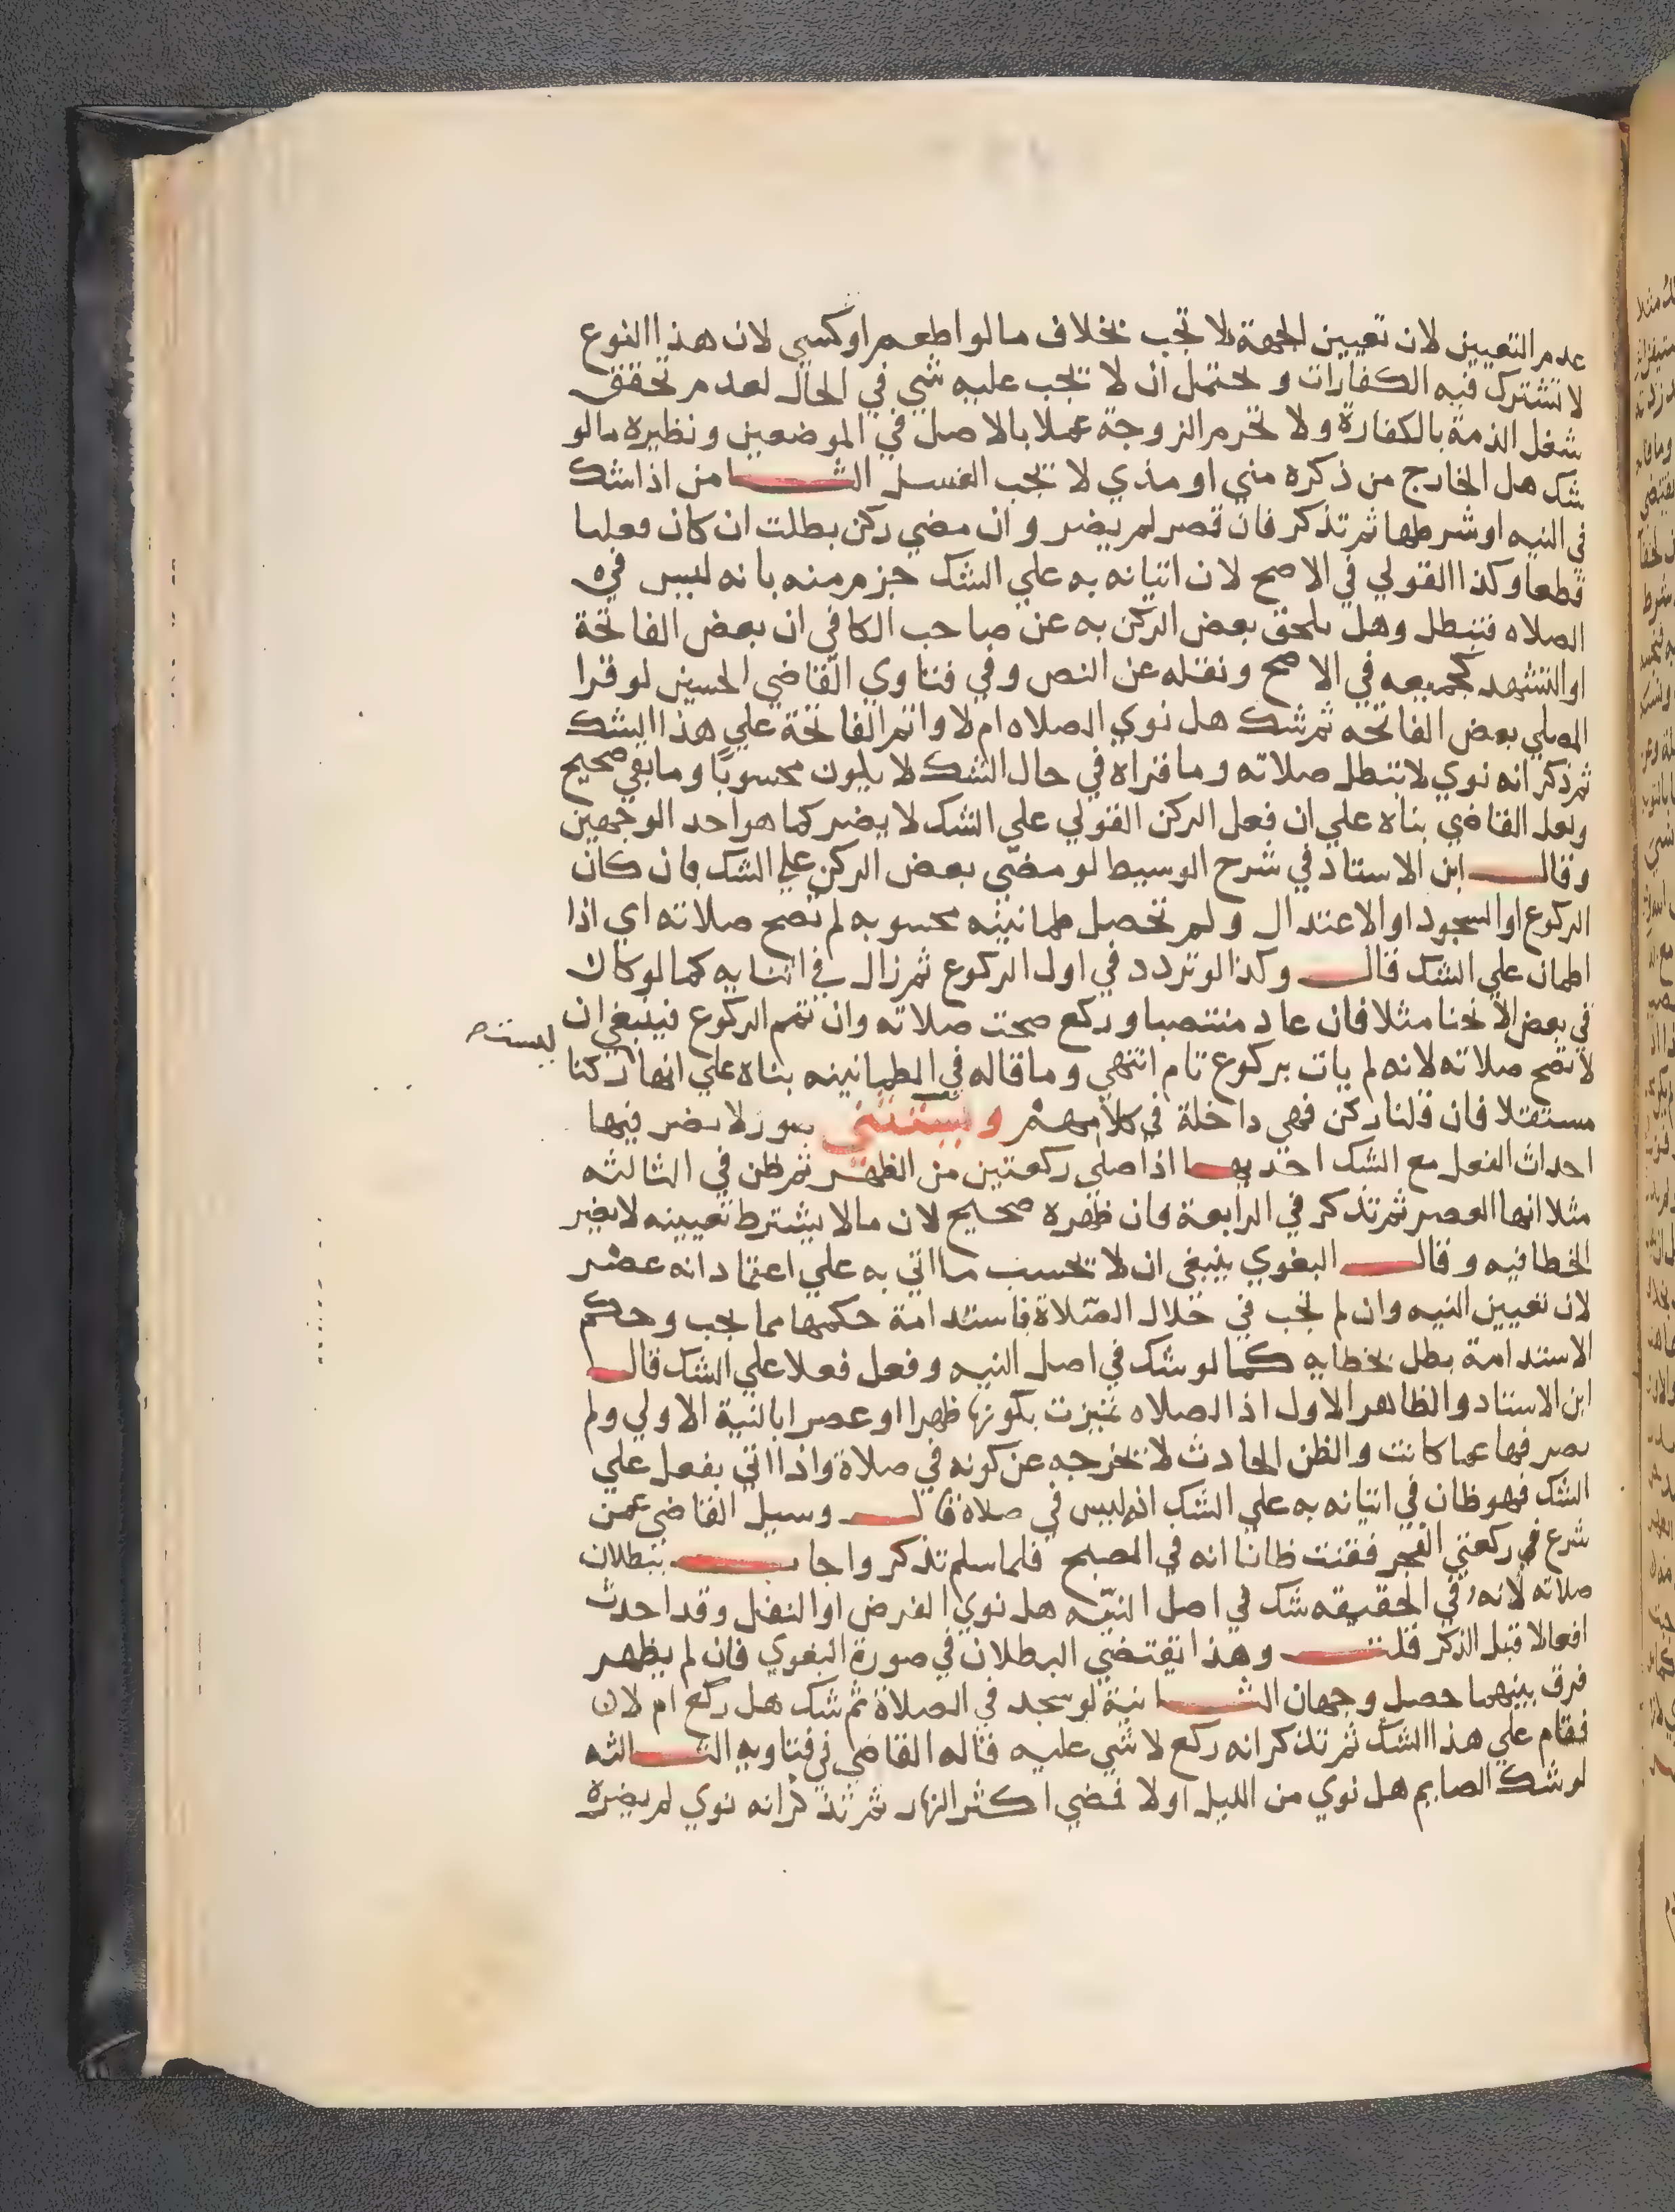 عدم التعيين لان تعيين الجهة لا تجب بخلاف ما لو اطعم او كسي لان هذا النوع
لا تشترك فيه الكفارات و يحتمل ان لا تجب عليه شي في الحال لعدم تحقق
شغل الذمة بالكفارة ولا تحرم الزوجة عملا بالاصل في الموضعين ونظيره ما لو
شك هل الخارج من ذكره مني او مذي لا يجب الغسل الثامن اذا شك
في النيه او شرطها ثم تذكر فان قصر لم يضر وان مضي ركن بطلت ان كان فعليا
قطعا وكذا القولي في الاصح لان اتيانه به علي الشك جزم منه بانه ليس في
الصلاه فتبطل وهل يلحق بعض الركن به عن صاحب الكافي ان بعض الفاتحة
او التشهد كجميعه في الاصح ونقله عن النص وفي فتاوي القاضي الحسين لو قرا
المصلي بعض الفاتحه ثم شك هل نوي الصلاه ام لا واتم الفاتحة علي هذا الشك
ثم ذكر انه نوي لا تبطل صلاته وما قراه في حال الشك لا يكون محسوبا وما بقي صحيح
ولعل القاضي بناه علي ان فعل الركن القولي علي الشك لا يضر كما هو احد الوجهين
وقال ابن الاستاد في شرح الوسيط لو مضي بعض الركن علي الشك فان كان
الركوع او السجود او الاعتدال ولم تحصل طمانينه محسوبه لم تصح صلاته اي اذا
اطمان علي الشك قال وكذا لو تردد في اول الركوع ثم زال في اثنايه كما لو كان
في بعض الانحنا مثلا فان عاد منتصبا وركع صحت صلاته وان تمم الركوع فينبغي ان
لا تصح صلاته لانه لم يات بركوع تام انتهي وما قاله في الطمانينه بناه علي انها ركنا
ليست
مستقلا فان قلنا ركن فهي داخلة في كلامهم ويستثني صور لا يضر فيها
احداث الفعل مع الشك احديها اذا صلي ركعتين من الظهر ثم ظن في الثالثه
مثلا انها العصر ثم تذكر في الرابعة فان ظهره صحيح لان ما لا يشترط تعيينه لا يضر
الخطا فيه وقال البغوي ينبغي ان لا تحسب ما اتي به علي اعتقاد انه عصر
لان تعيين النيه وان لم تجب في خلال الصلاة فاستدامة حكمها مما يجب وحكم
الاستدامة بطل بخطايه كما لو شك في اصل النيه وفعل فعلا علي الشك قال
ابن الاستاد والظاهر الاول اذ الصلاه تميزت بكونها ظهرا او عصرا بالنية الاولي ولم
يصرفها عما كانت والظن الحادث لا تخرجه عن كونه في صلاة واذا اتي بفعل علي
الشك فهو ظان في اتيانه به علي الشك انه ليس في صلاة قال وسيل القاضي عمن
شرع في ركعتي الفجر فقنت ظانا انه في الصبح فلما سلم تذكر واجاب ببطلان
صلاته لانه في الحقيقه شك في اصل النيه هل نوي الفرض او النفل وقد احدث
افعالا قبل الذكر قلت وهذا يقتضي البطلان في صورة البغوي فان لم يظهر
فرق بينهما حصل وجهان الثانية لو سجد في الصلاة ثم شك هل ركع ام لا
فقام علي هذا الشك ثم تذكر انه ركع لا شي عليه قاله القاضي في فتاويه الثالثه
لو شك الصايم هل نوي من الليل او لا فمضي اكثر النهار ثم تذكر انه نوي لم يضره